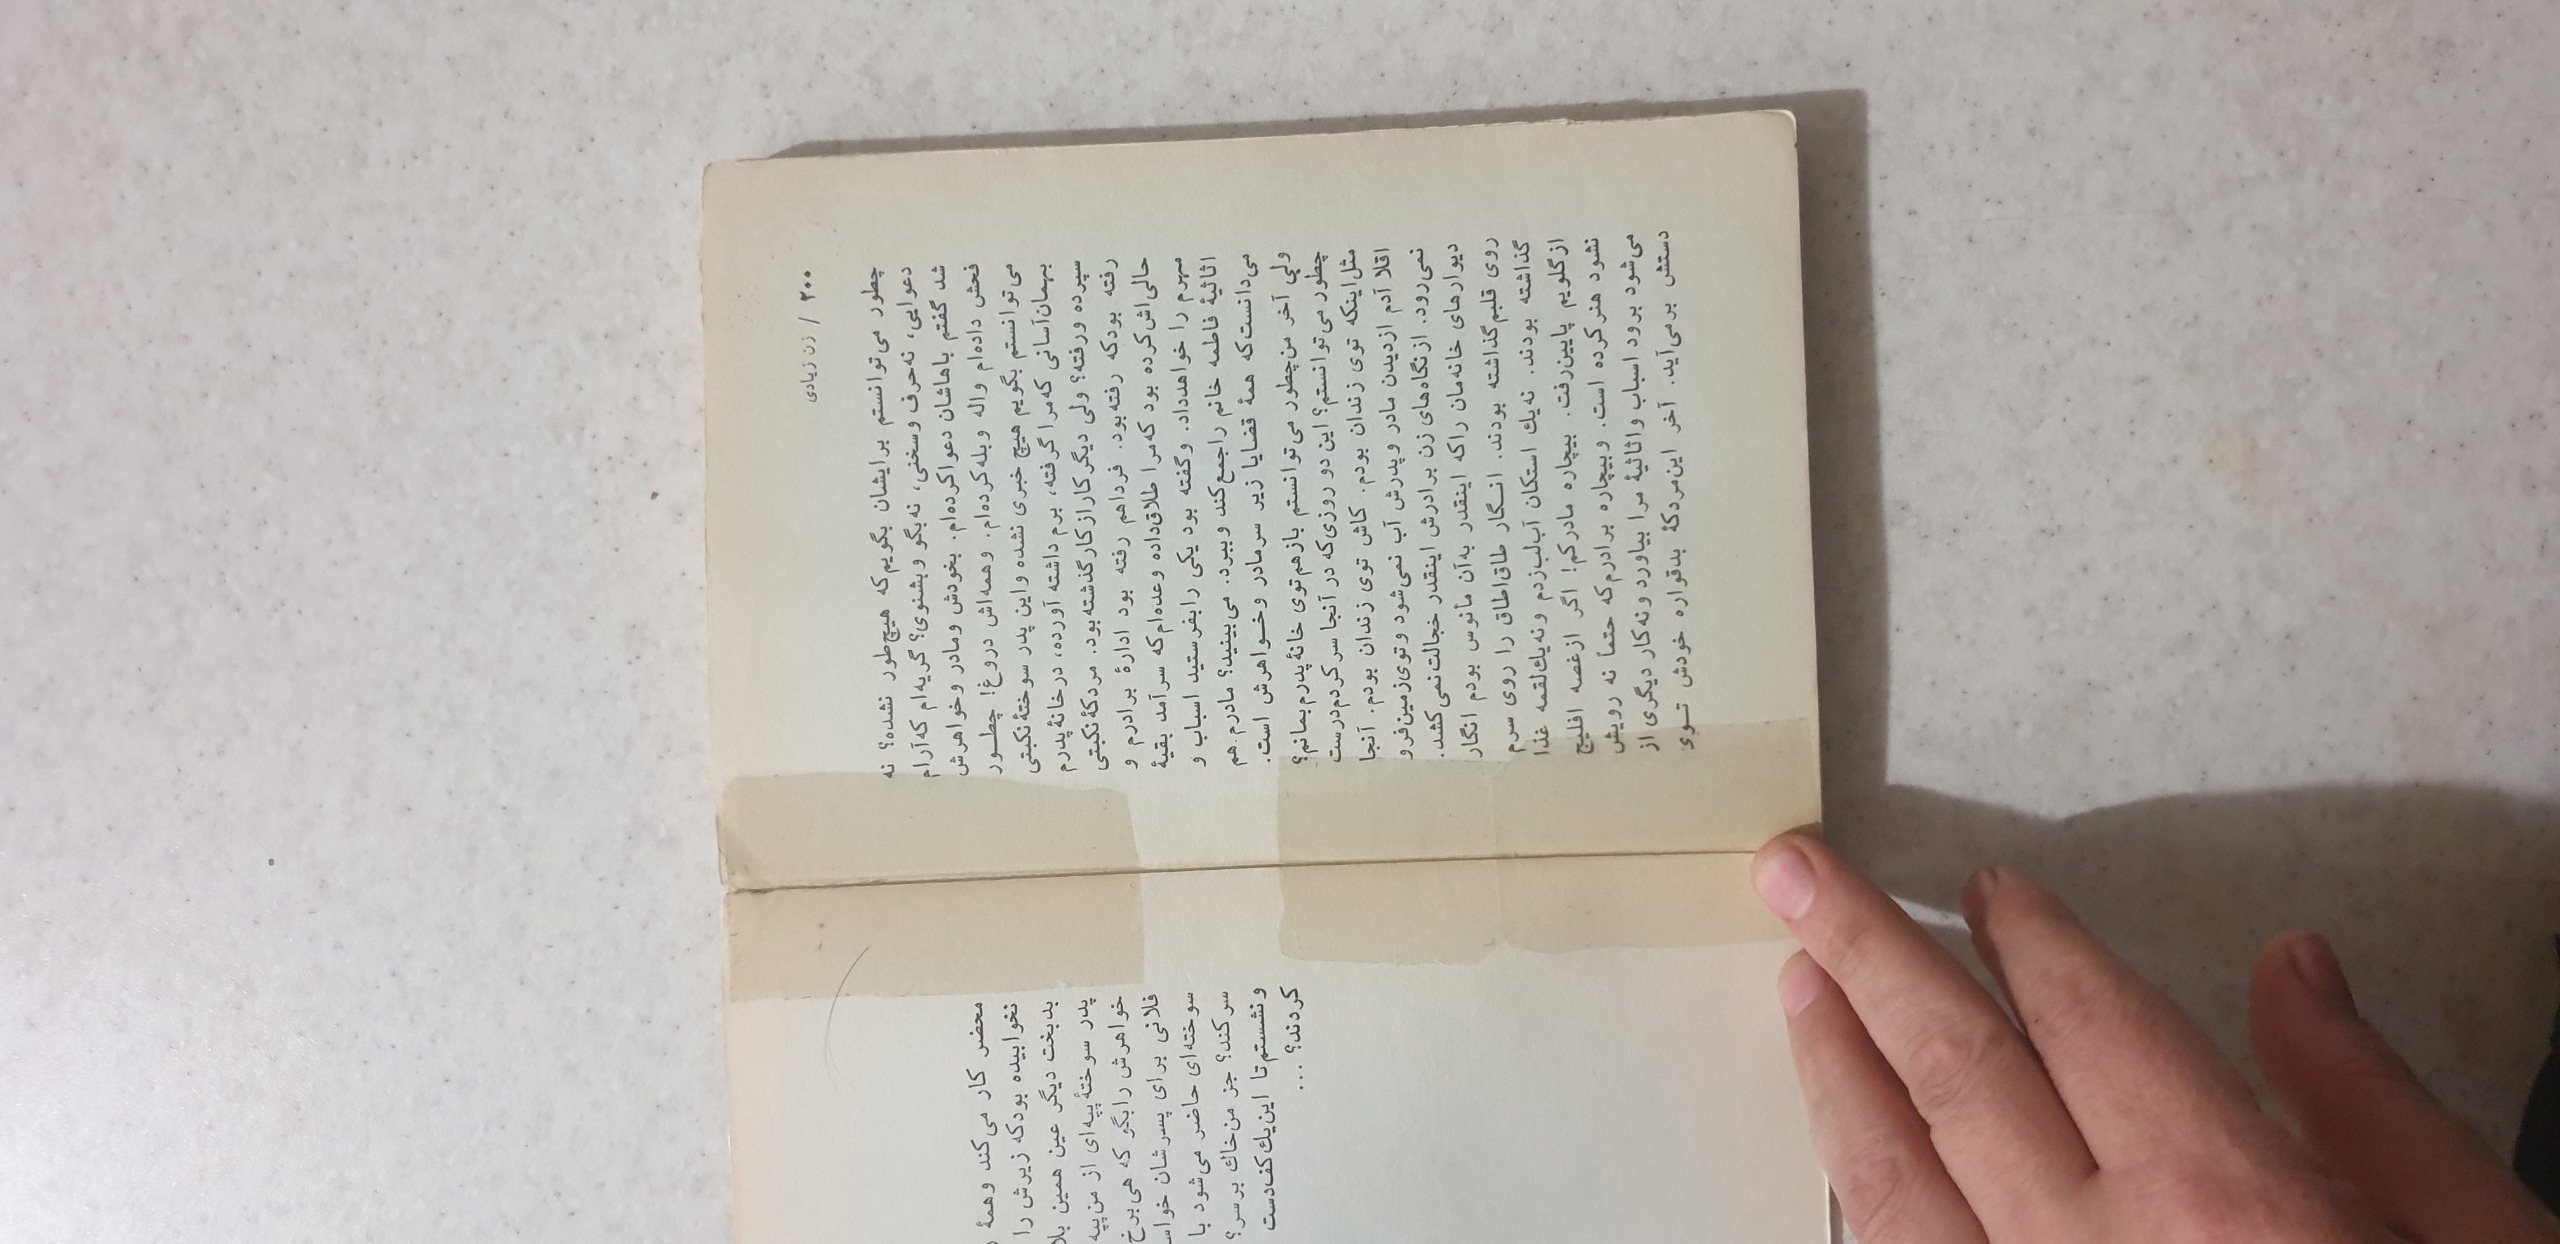 ۲۰۰ / زن زیادی
چطور می‌توانستم برایشان بگویم که هیچ‌طور نشده؟ نه
دعوایی، نه‌حرف وسخنی، نه‌بگو وبشنوی؟ گریه‌ام که‌آرام
شد گفتم باهاشان دعواکرده‌ام. بخودش ومادر وخواهرش
فحش داده‌ام واله وبله‌کرده‌ام. وهمه‌اش دروغ! چطـور
می‌توانستم بگویم هیچ خبری نشده واین پدر سوختهٔ‌نکبتی
بهمان‌آسانی که‌مراگرفته، برم داشته آورده، درخانهٔ‌پدرم
سپرده ورفته؟ ولی دیگر کاراز کارگذشته‌بود. مردکهٔ‌نکبتی
رفته بودکه رفته‌بود. فرداهم رفته بود ادارهٔ برادرم و
حالی‌اش‌کرده بود که‌مرا طلاق‌داده وعده‌ام‌که سرآمد بقیهٔ
مهرم را خواهدداد. وگفته بود یکی رابفرستید اسباب و
اثاثیهٔ فاطمه خانم راجمع‌کند وببرد. می‌بینید؟ مادرم هم
می‌دانست‌که همهٔ قضایا زیر سرمادر وخـواهرش است.
ولی آخر من‌چطور می‌توانستم بازهم‌توی خانهٔ‌پدرم‌بمانم؟
چطور می‌توانستم؟ این دو روزی‌که در آنجا سرکردم‌درست
مثل‌اینکه توی زندان بودم. کاش توی زندان بودم. آنجا
اقلا آدم ازدیدن مادر وپدرش آب نمی‌شود وتوی‌زمین‌فرو
نمی‌رود. ازنگاه‌های زن برادرش اینقدر خجالت‌نمی‌کشد.
دیوارهای خانه‌مان راکه اینقدر به‌آن مأنوس بودم انگار
روی قلبم‌گذاشته بودند. انـگار طاق‌اطاق را روی سرم
گذاشته بودند. نه‌یك استکان آب‌لب‌زدم ونه‌یك‌لقمه غذا
ازگلویم پایین‌رفت. بیچاره مادرکم! اگر ازغصه افلیج
نشود هنرکرده است. وبیچاره برادرم‌که حتماً نه رویش
می‌شود برود اسباب واثاثیهٔ مرا بیاورد ونه‌کار دیگری از
دستش برمی‌آید. آخر این‌مردکهٔ بدقواره خودش تـوی
محضر کار می‌کند وهمهٔ
نخوابیده بودکه زیرش را
بدبخت دیگر عین همین بلا
پدر سوختهٔ‌پپه‌ای از من‌پپه
خواهرش رابگو که هی‌برخ
فلانی برای پسرشان خواس
سوخته‌ای حاضر می‌شود با
سرکند؟ جز من‌خاك برسر؟
ونشستم‌تا این‌یك‌کف‌دست
کردند؟ ...